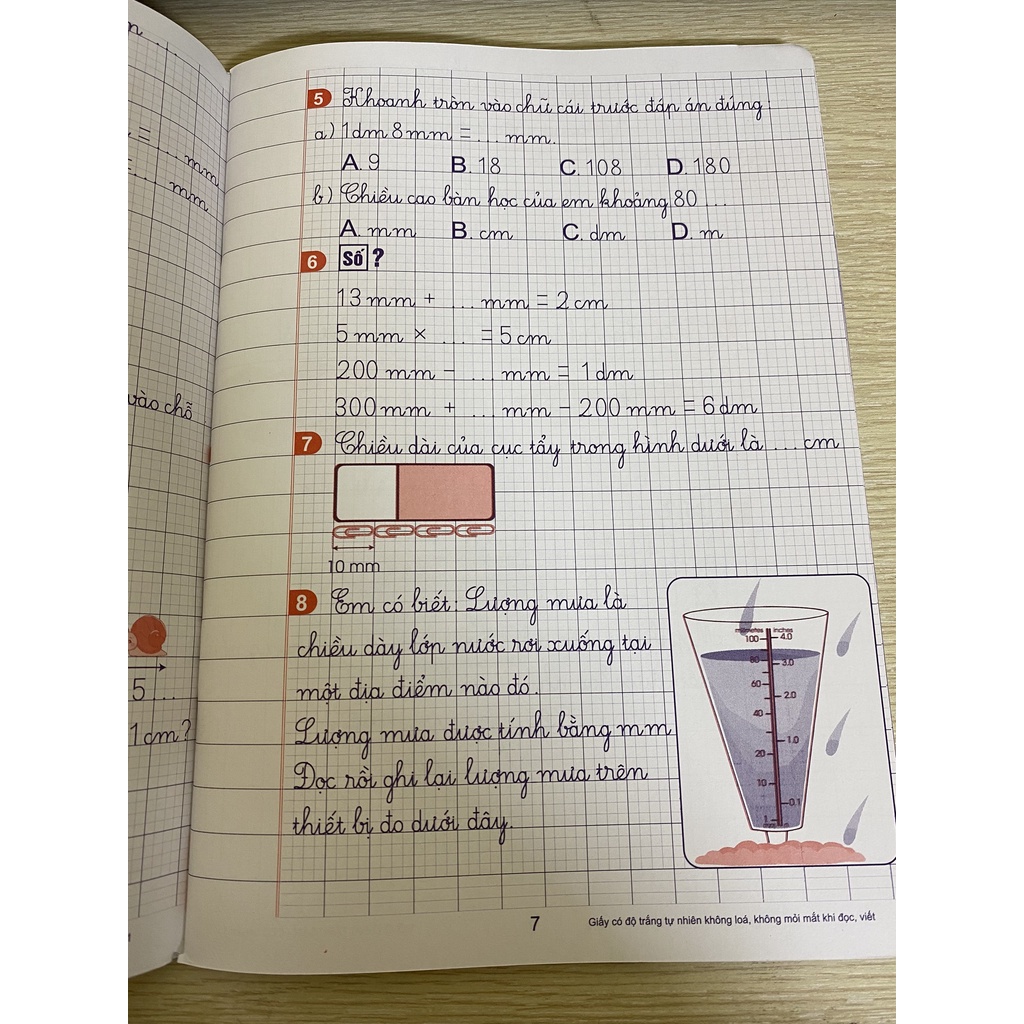 = ... mm
= ... mm
vào chỗ
5 ...
1 cm?
5 Khoanh tròn vào chữ cái trước đáp án đúng:
a) 1dm 8mm = ... mm.
A. 9 B. 18 C. 108 D. 180
b) Chiều cao bàn học của em khoảng 80 ...
A. mm B. cm C. dm D. m
6 Số ?
13 mm + ... mm = 2 cm
5 mm × ... = 5 cm
200 mm - ... mm = 1 dm
300 mm + ... mm - 200 mm = 6 dm
7 Chiều dài của cục tẩy trong hình dưới là ... cm
10 mm
8 Em có biết: Lượng mưa là
chiều dày lớp nước rơi xuống tại
một địa điểm nào đó.
Lượng mưa được tính bằng mm
Đọc rồi ghi lại lượng mưa trên
thiết bị đo dưới đây.
inches
100 4.0
80 3.0
60
2.0
40
1.0
20
10
0.1
1
7 Giấy có độ trắng tự nhiên không loá, không mỏi mắt khi đọc, viết